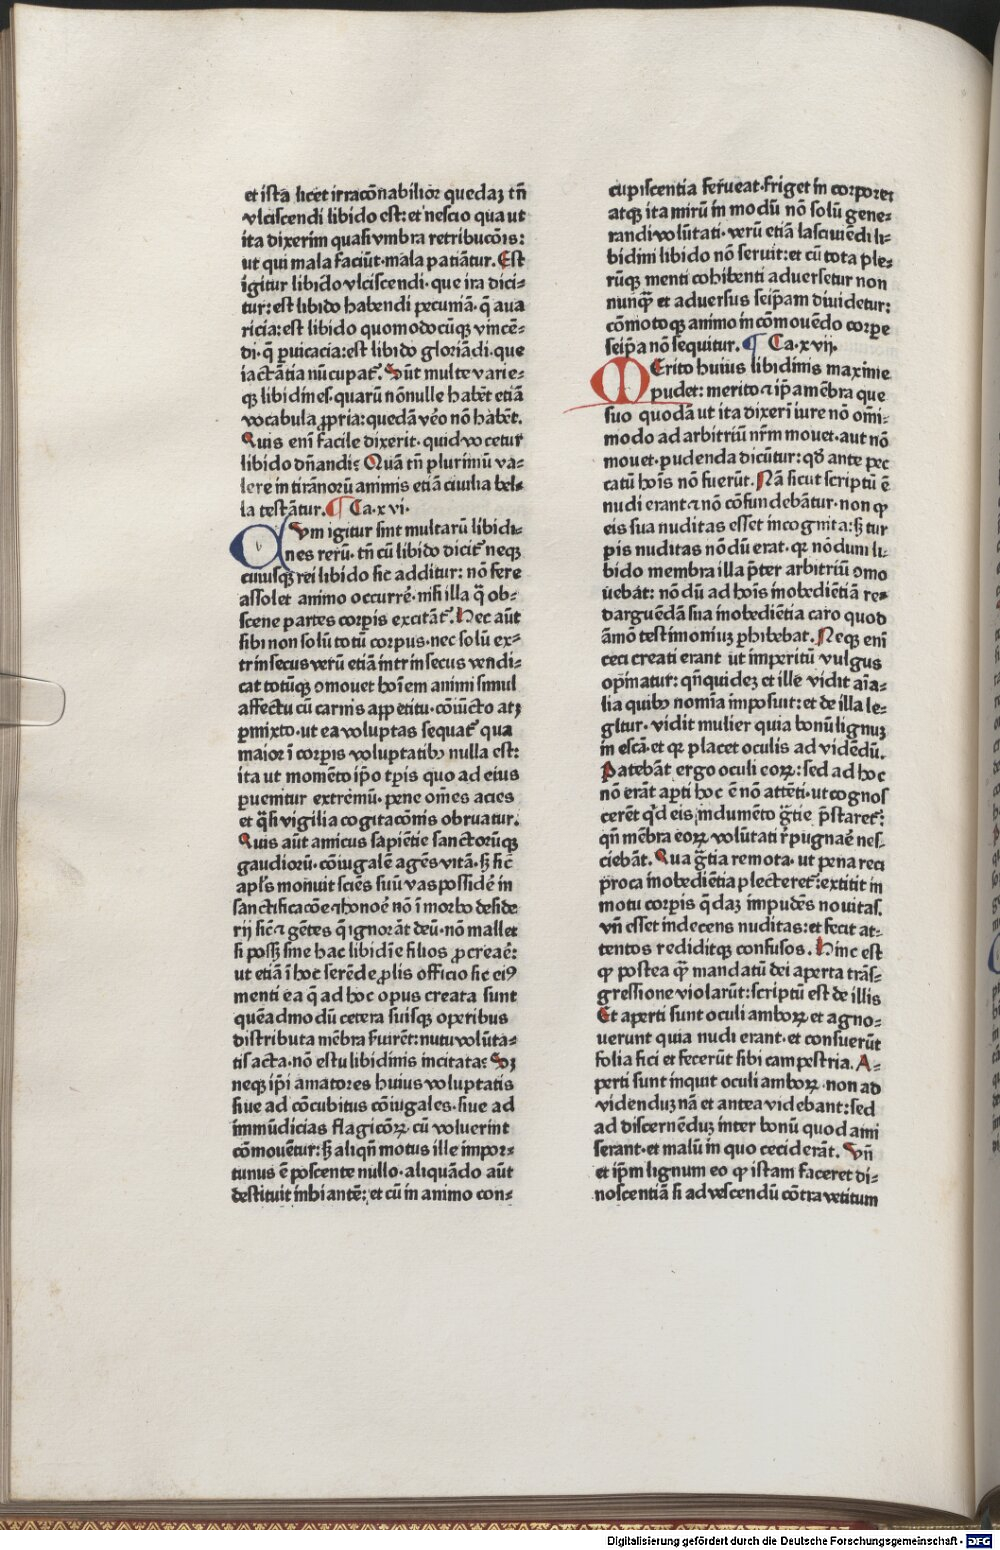 et ista licet irracōnabilior quedaʒ tñ
vlciscendi libido est: et nescio qua ut
ita dixerim quasi vmbra retribucōis:
ut qui mala faciūt·mala patiātur. Est
igitur libido vlciscendi·que ira dici⸗
tur: est libido habendi pecuniā·q̄ aua
ricia: est libido quomodocūqꝫ vincē⸗
di·q̄ ꝑuicacia: est libido gloriādi·que
iactātia nūcupat᷑. Sūt multe varie⸗
qꝫ libidines·quarū nōnulle habēt etiā
vocabula ꝓpria: quedā v̄o nō habēt.
Quis eni facile dixerit·quid vocetur
libido dn̄andi? Quā tñ plurimū va⸗
lere in tirānorū animis etiā ciuilia bel⸗
la testātur. ¶ Ca·xvi·
Vm igitur sint multarū libidi⸗
nes rerū·tñ cū libido dicit᷑ neqꝫ
cuiusqꝫ rei libido sic additur: nō fere
assolet animo occurrē·nisi illa q̄ ob⸗
scene partes corꝑis excitāt᷑. Hec aūt
sibi non solū totū corpus·nec solū ex⸗
trinsecus verū etiā intrinsecus vendi⸗
cat totūqꝫ ꝯmouet hoīem animi simul
affectu cū carnis appetitu·cōiūcto atꝫ
ꝑmixto·ut ea voluptas sequat᷑ qua
maior ī corꝑis voluptatibꝫ nulla est:
ita ut momēto ip̄o tꝑis quo ad eius
ꝑuenitur extremū·pene om̄es acies
et q̄si vigilia cogitacōnis obruatur.
Quis aūt amicus sapiētie sanctorūqꝫ
gaudiorū·cōiugalē agēs vitā·sꝫ sic̄
apl̄s monuit sciēs suū vas possidē in
sanctificacōe ⁊ honoē nō ī morbo deside
rij sic̄ ⁊ gētes q̄ ignorāt deū·nō mallet
si possꝫ sine hac libidīe filios ꝓcreaē:
ut etiā ī hoc serēde ꝓlis officio sic eiꝰ
menti ea q̄ ad hoc opus creata sunt
quēadmodū cetera suisqꝫ operibus
distributa mēbra ẜuirēt: nutu volūta⸗
tis acta·nō estu libidinis incitata? Sꝫ
neqꝫ ip̄i amatores huius voluptatis
siue ad cōcubitus cōiugales·siue ad
immūdicias flagicōꝝ cū voluerint
cōmouētur: sꝫ aliqn̄ motus ille impor⸗
tunus ē poscente nullo·aliquādo aūt
destituit inhiantē: et cū in animo con⸗
cupiscentia ferueat·friget in corpore:
atqꝫ ita mirū in modū nō solū gene⸗
randi volūtati·verū etiā lasciuiēdi li⸗
bidini libido nō seruit: et cū tota ple⸗
rūqꝫ menti cohibenti aduersetur non
nunqꝫ̄ et aduersus seip̄am diuidetur:
cōmotoqꝫ animo in cōmouēdo corpe
seip̄a nō sequitur. ¶ Ca·xvij·
MErito huius libidinis maxime
pudet: merito ⁊ ip̄a mēbra que
suo quodā ut ita dixerī iure nō om̄i⸗
modo ad arbitriū nr̄m mouet·aut nō
mouet·pudenda dicūtur: qđ ante pec
catū hoīs nō fuerūt. Nā sicut scriptū ē
nudi erant ⁊ nō cōfundebātur·non ꝙ
eis sua nuditas esset incognita: sꝫ tur
pis nuditas nōdū erat·qꝛ nōdum li⸗
bido membra illa p̄ter arbitriū ꝯmo
uebāt: nōdū ad hoīs inobediētiā re⸗
darguēdā sua inobediētia caro quod
āmō testimoniuꝫ ꝑhibebat. Neqꝫ eni
ceci creati erant ut imperitū vulgus
opīnatur: qn̄quideꝫ et ille vidit aīa⸗
lia quibꝫ nomīa imposuit: et de illa le⸗
gitur·vidit mulier quia bonū lignuꝫ
in escā·et qꝛ placet oculis ad vidēdū.
Patebāt ergo oculi eoꝝ: sed ad hoc
nō erāt aꝑti hoc ē nō attēti·ut cognos
cerēt qđ eis indumēto gr̄tie p̄staret᷑:
qn̄ mēbra eoꝝ volūtati r̄pugnaē nes⸗
ciebāt. Qua gr̄tia remota·ut pena reci
proca inobediētia plecteret᷑: extitit in
motu corꝑis q̄daꝫ impudēs nouitas·
vn̄ esset indecens nuditas: et fecit at⸗
tentos rediditqꝫ confusos. Hinc est
ꝙ postea qꝫ̄ mandatū dei aperta trās⸗
gressione violarūt: scriptū est de illis
Et aperti sunt oculi amboꝝ et agno⸗
uerunt quia nudi erant·et consuerūt
folia fici et fecerūt sibi campestria. A⸗
perti sunt inquit oculi amboꝝ·non ad
videnduꝫ nā et antea videbant: sed
ad discernēduꝫ inter bonū quod ami
serant·et malū in quo ceciderāt. Vn̄
et ip̄m lignum eo ꝙ istam faceret di⸗
noscentiā si ad vescendū cōtra vetitum
Digitalisierung gefördert durch die Deutsche Forschungsgemeinschaft - DFG